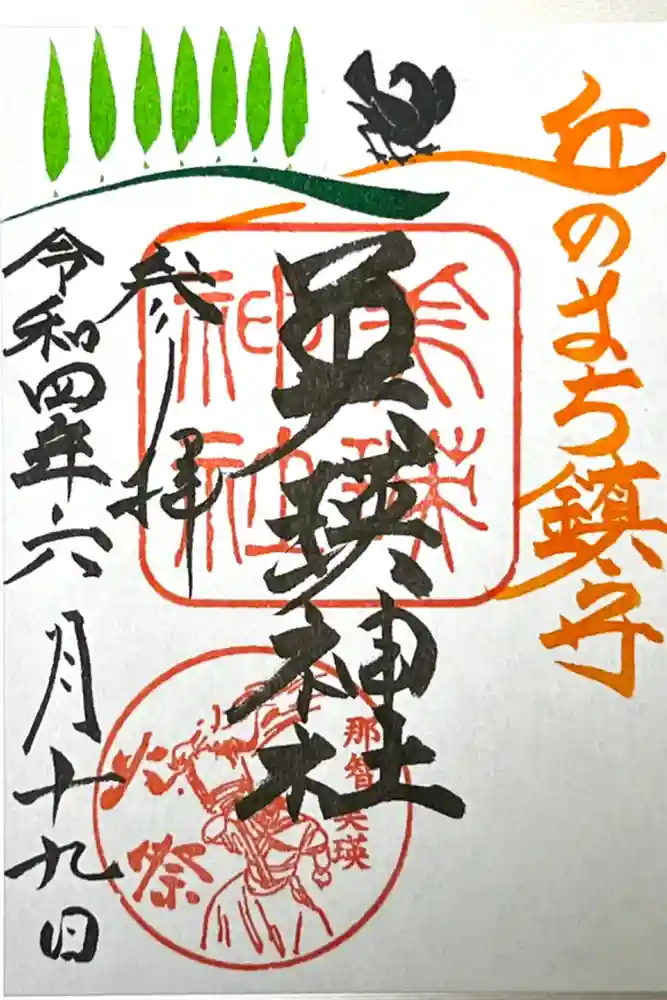 丘のまち鎮守
美瑛神社
美瑛
神社
那智美瑛
火祭
参拝
令和四年六月十九日